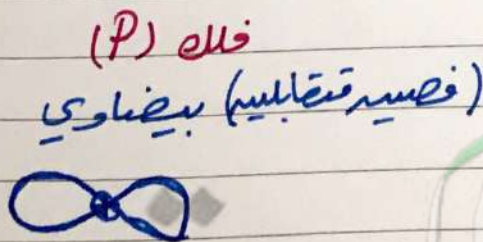 فلك (P)
(فصين متقابلين) بيضاوي